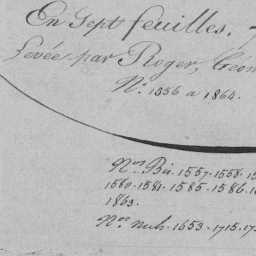 En Sept feuilles.
Levée par Roger, Géom
N.º 1356 a 1864.
N.os Bis. 1557. 1558. 15
1580. 1581. 1585. 1586. 1
1863.
N.os 1653. 1715. 17